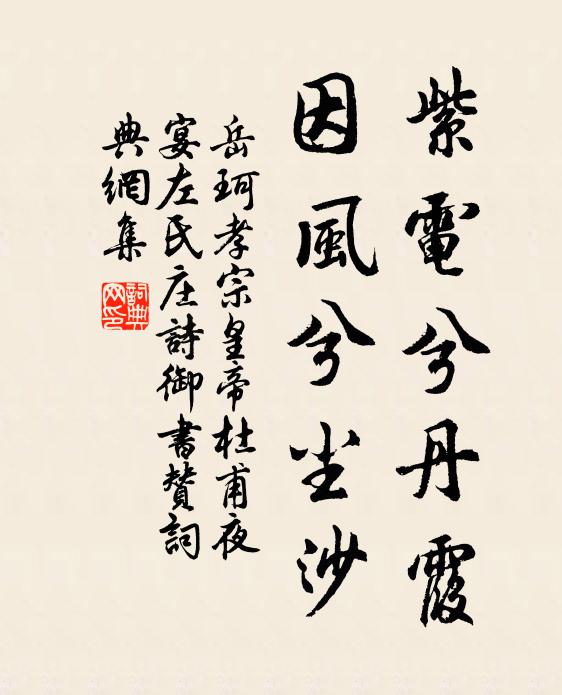 紫電兮丹霞
因風兮尘沙
岳珂孝宗皇帝杜甫夜
宴左氏庄詩御書贊詞
典網集
詞典网印